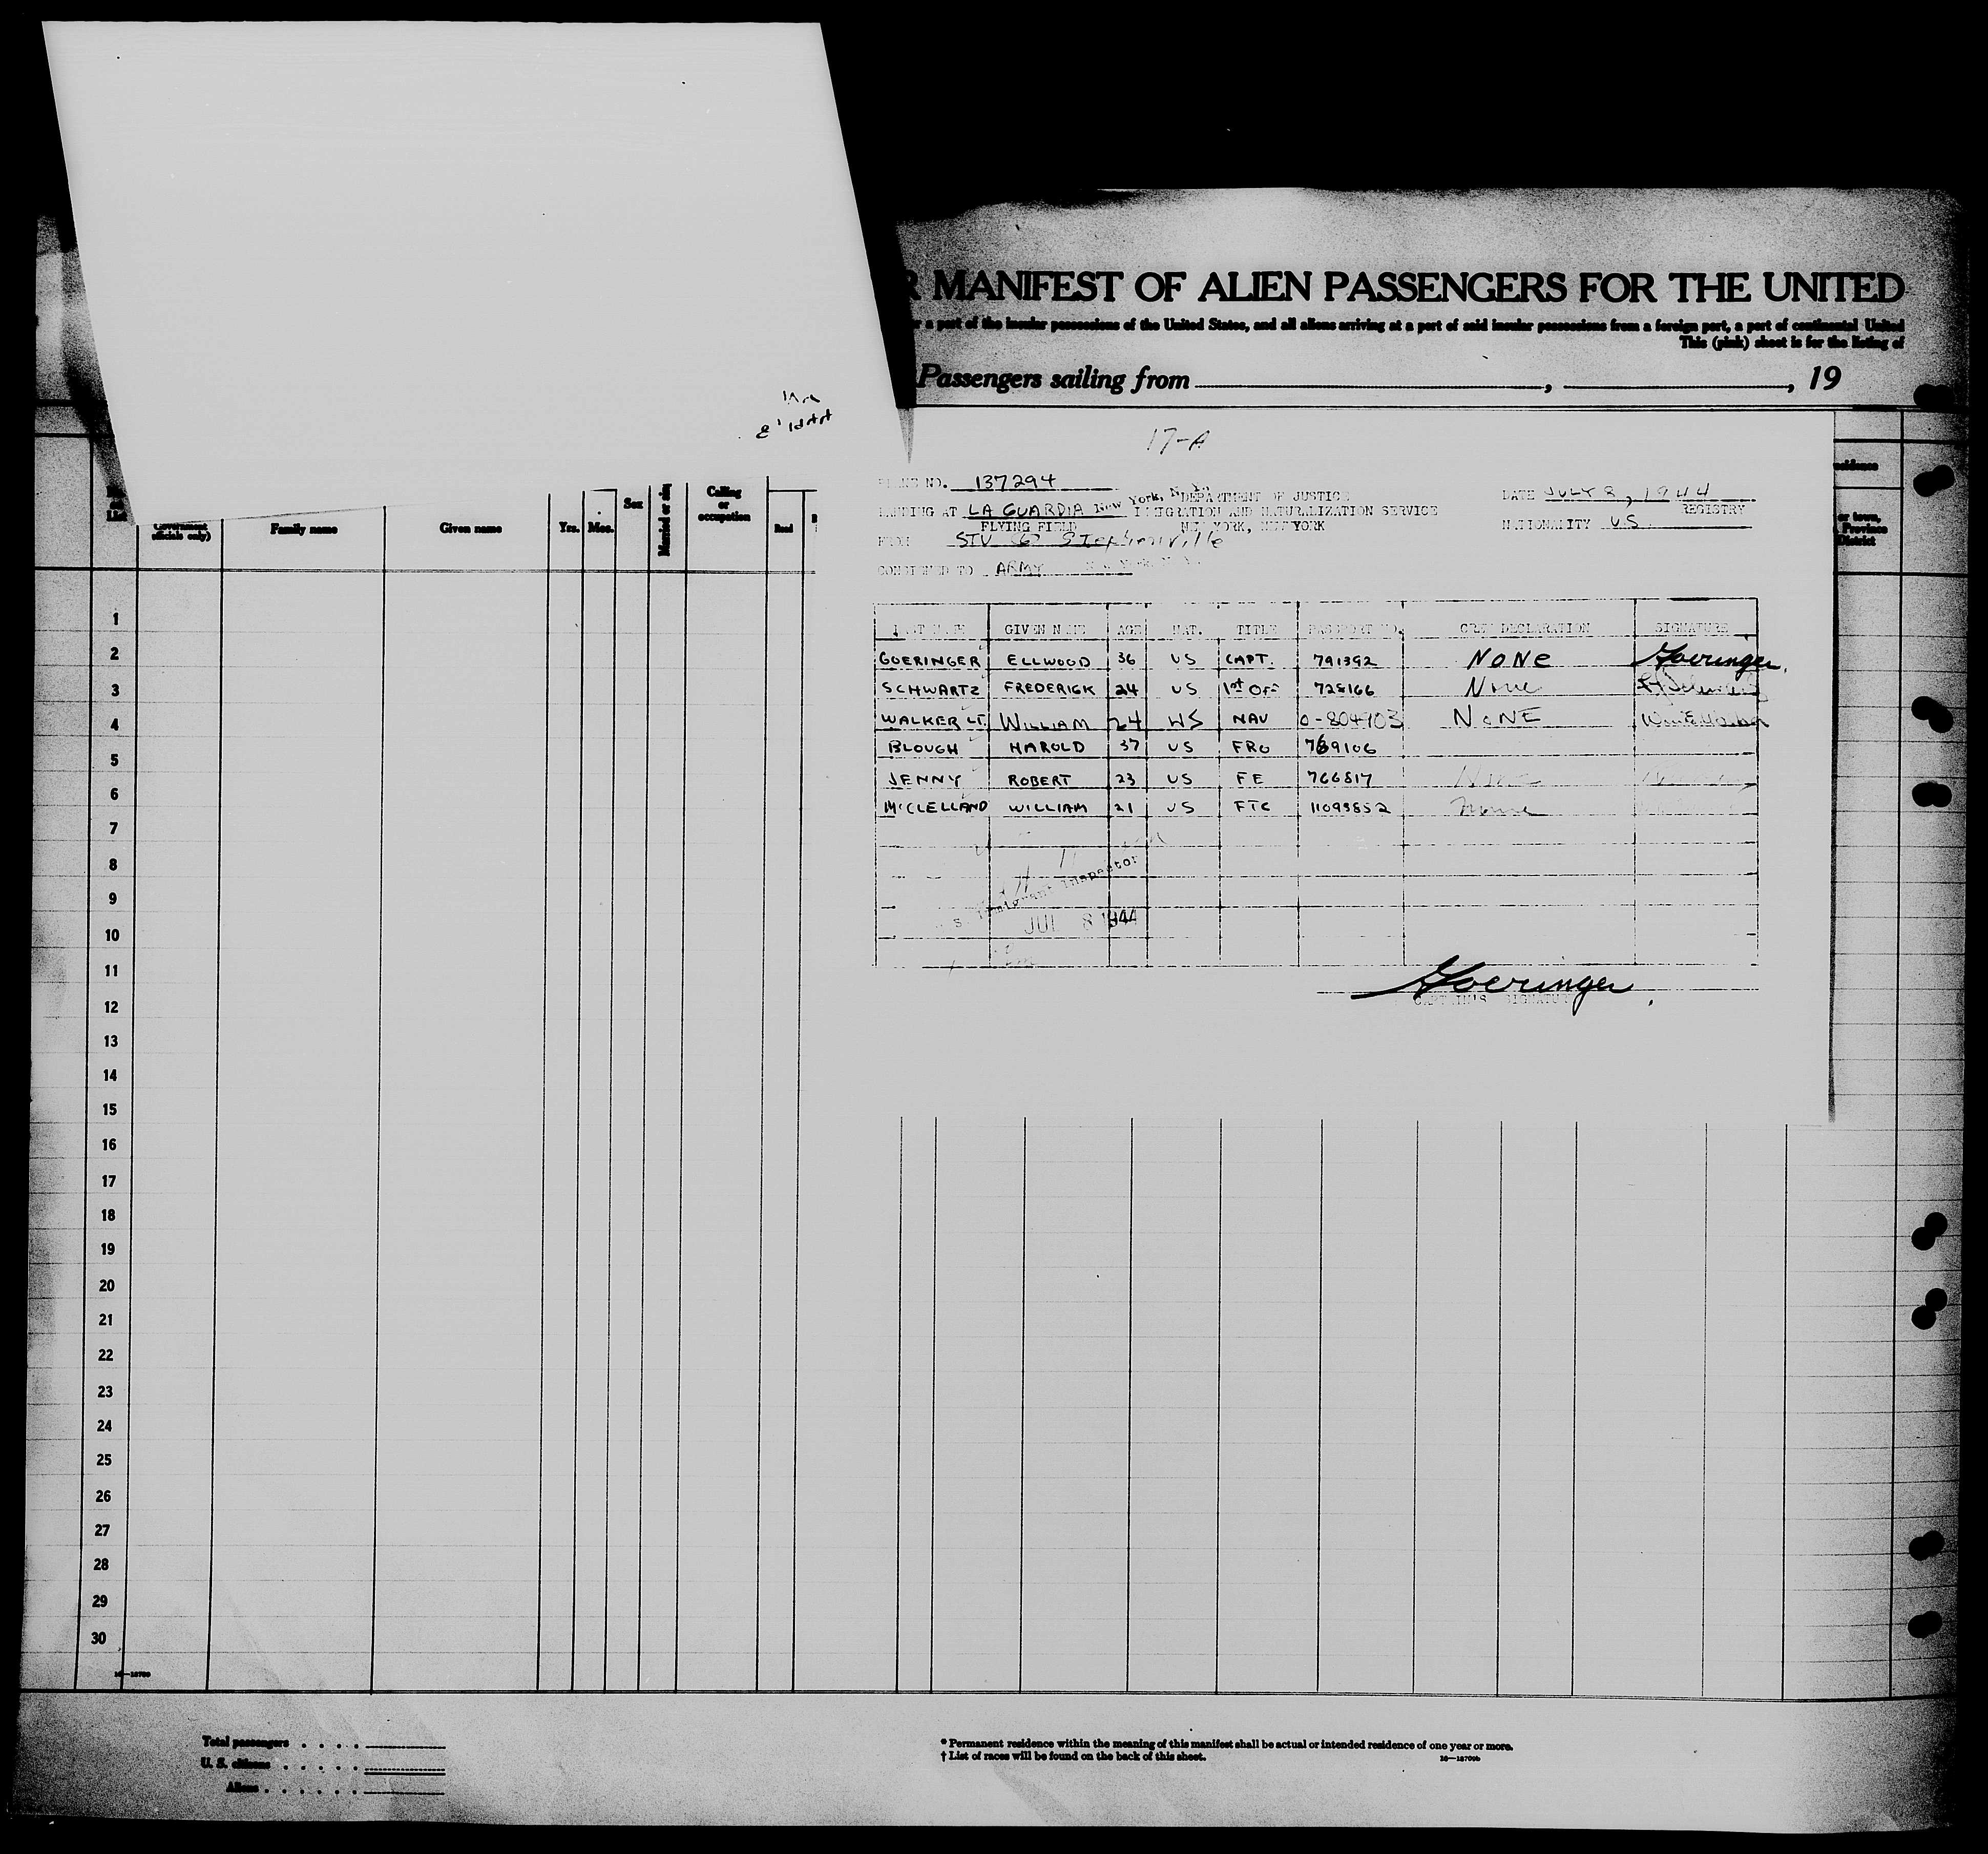 MANIFEST OF ALIEN PASSENGERS FOR THE UNITED
a port of the insular possessions of the United States, and all aliens arriving at a port of said insular possessions from a foreign port, a port of continental United
This (pink) sheet is for the listing of
Passengers sailing from , , 19
17-A
PLANE NO. 137294
DEPARTMENT OF JUSTICE
DATE JULY 8, 1944
LANDING AT LA GUARDIA New York, N.Y. IMMIGRATION AND NATURALIZATION SERVICE REGISTRY
FLYING FIELD NEW YORK, NEW YORK NATIONALITY US
FROM STV Stephenville
CONSIGNED TO ARMY
List
Government officials only)
Family name
Given name
Yrs.
Mos.
Sex
Calling or occupation
Read
or town, Province District
LAST NAME GIVEN NAME AGE NAT. TITLE PASSPORT NO. CREW DECLARATION SIGNATURE
GOERINGER ELLWOOD 36 US CAPT. 791392 NONE Goeringer
SCHWARTZ FREDERICK 24 US 1st OFF 728166 None
WALKER LT. WILLIAM 24 US NAV O-804903 NONE
BLOUGH HAROLD 37 US FRO 789106
JENNY ROBERT 23 US FE 766817
McCLELLAND WILLIAM 21 US FTC 11098852 None
Immigrant Inspector
JUL 8 1944
Goeringer
CAPTAIN'S SIGNATURE
1
2
3
4
5
6
7
8
9
10
11
12
13
14
15
16
17
18
19
20
21
22
23
24
25
26
27
28
29
30
Total passengers
U. S. citizens
Aliens
* Permanent residence within the meaning of this manifest shall be actual or intended residence of one year or more.
† List of races will be found on the back of this sheet.